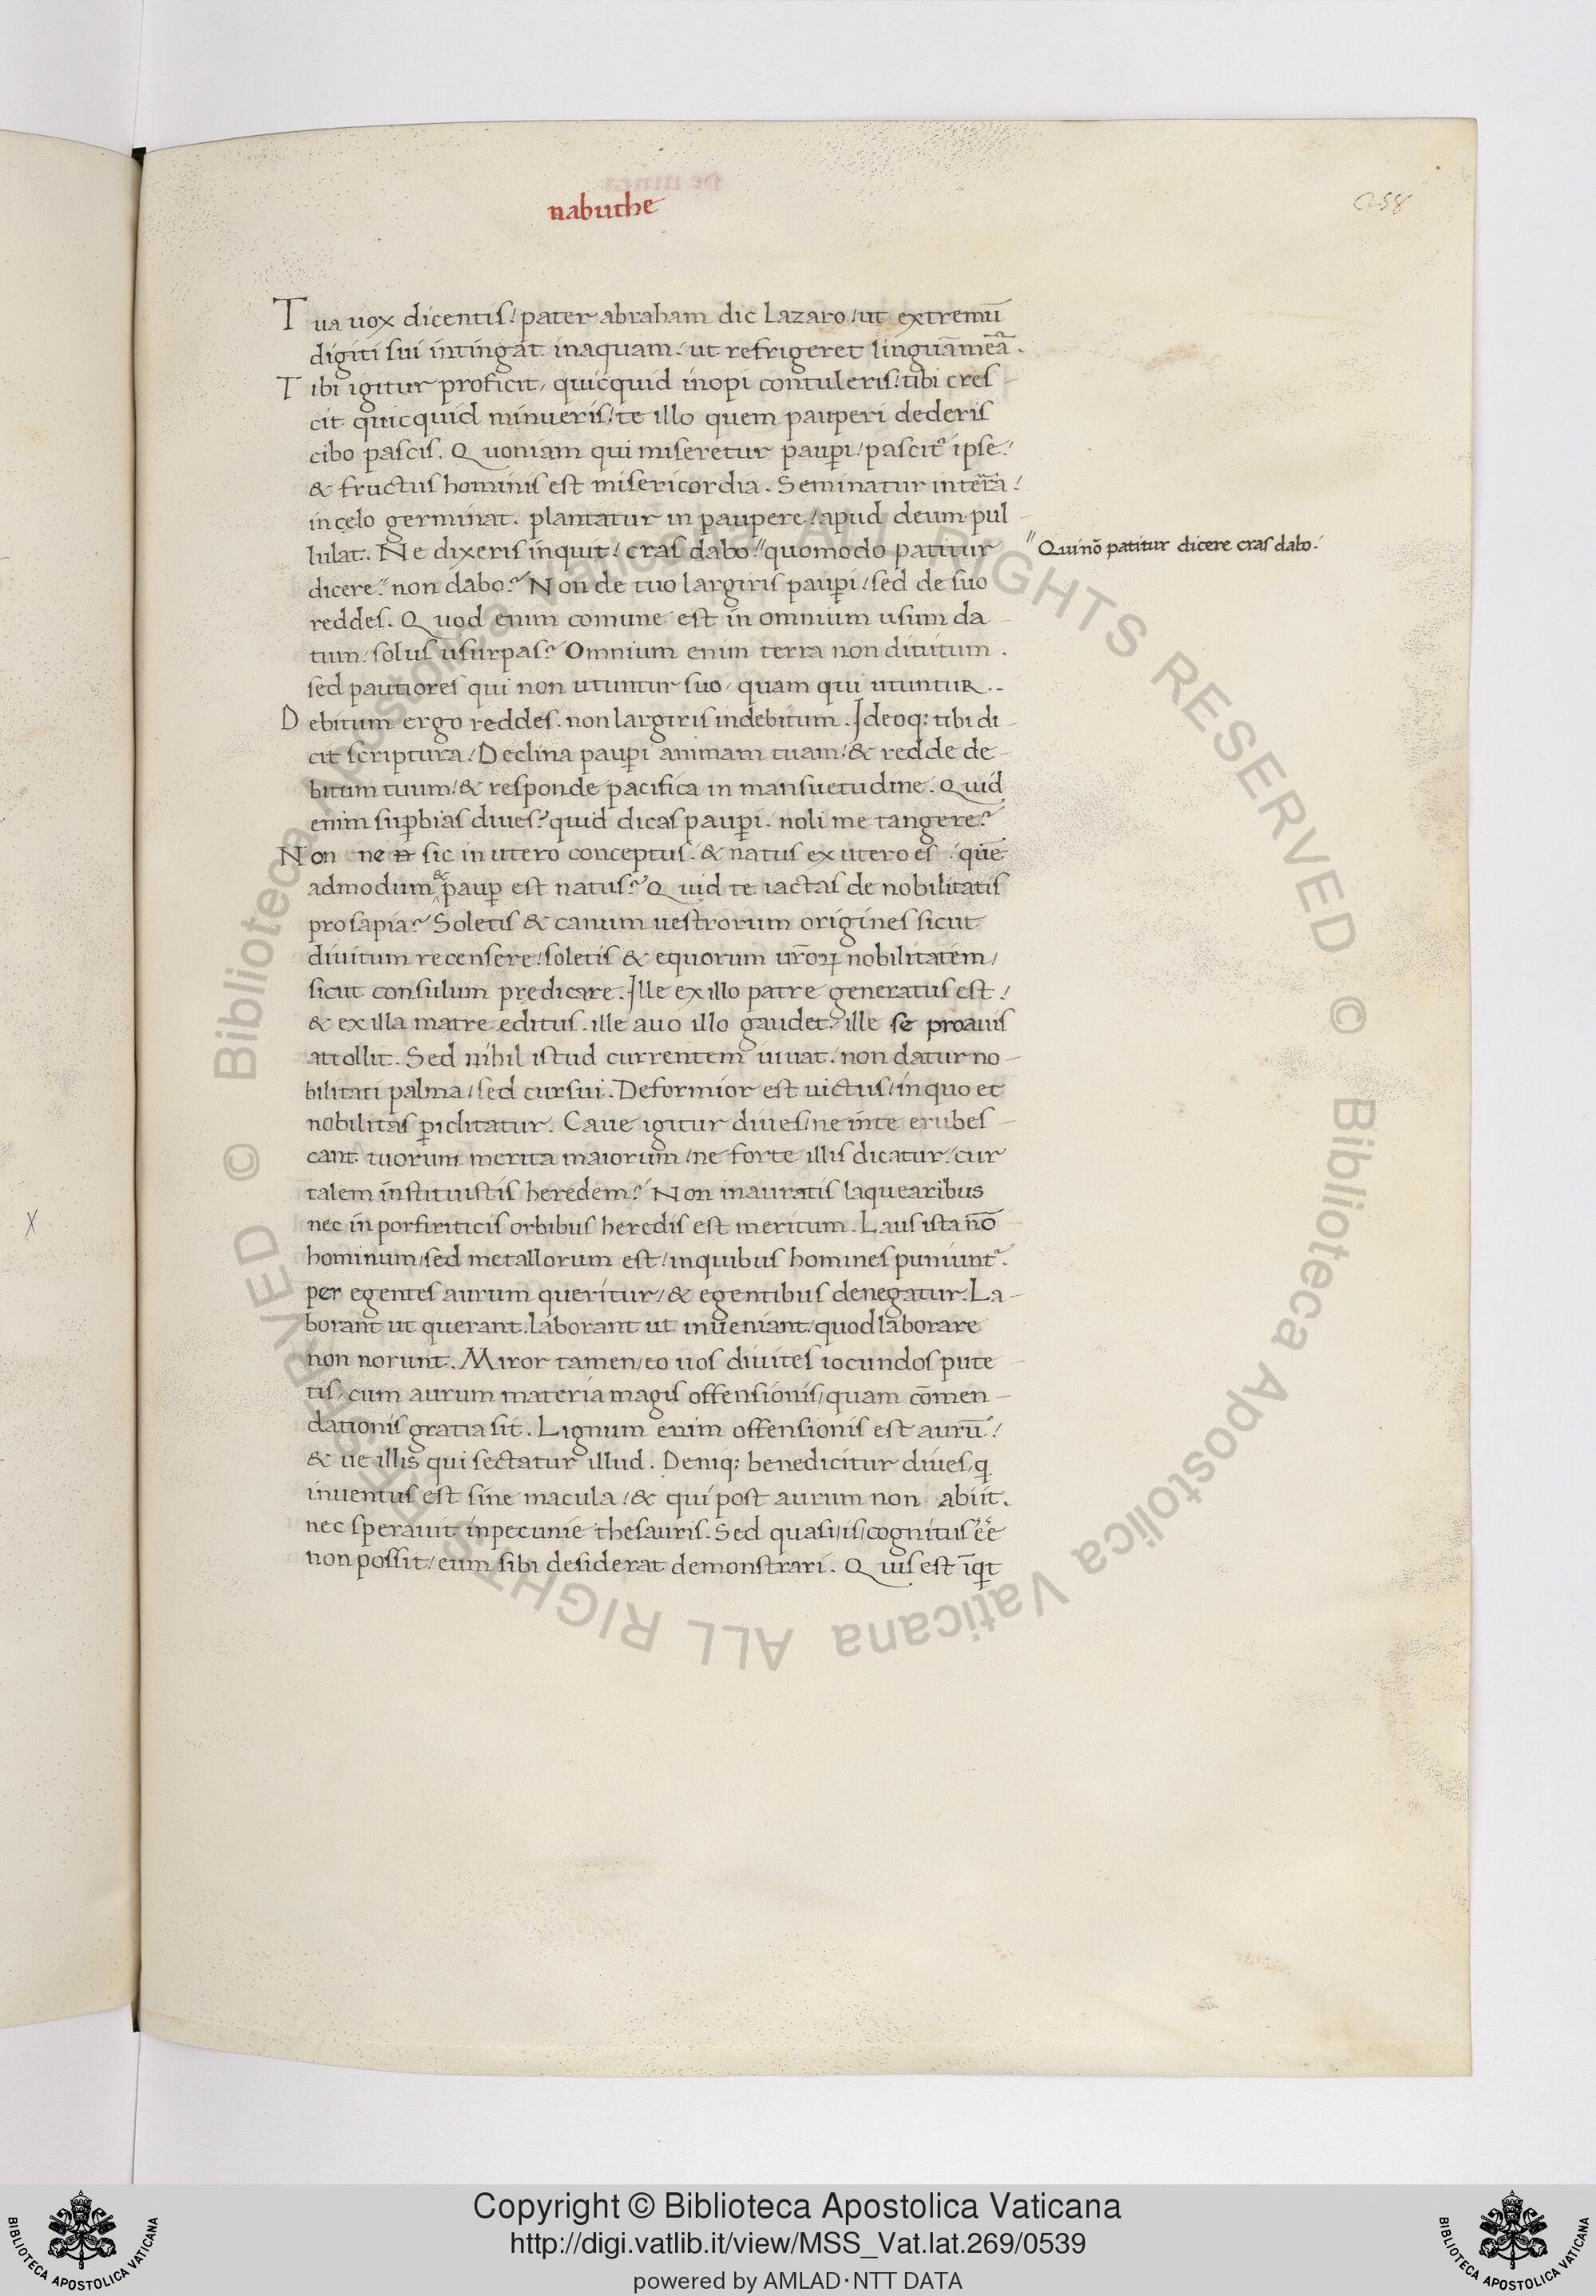 nabuthe
258
Tua uox dicentis/ pater abraham dic Lazaro/ ut extremū
digiti sui intingat inaquam. ut refrigeret linguā meā.
Tibi igitur proficit, quicquid inopi contuleris/ tibi cres-
cit quicquid minueris/ te illo quem pauperi dederis
cibo pascis. Quoniam qui miseretur paup̱i/ pascit᷑ ipse/
& fructus hominis est misericordia. Seminatur interra/
in cęlo germinat. plantatur in paupere/ apud deum pul-
lulat. Ne dixeris inquit/ cras dabo.″ quomodo patitur
″ Qui nō patitur dicere cras dabo.
dicere″ non dabo? Non de tuo largiris paup̱i/ sed de suo
reddes. Quod enim comune est in omnium usum da-
tum/ solus usurpas? Omnium enim terra non diuitum.
sed pautiores qui non utuntur suo/ quam qui utuntur.-
Debitum ergo reddes. non largiris indebitum. Ideoq; tibi di-
cit scriptura/ Declina paup̱i animam tuam/ & redde de-
bitum tuum/ & responde pacifica in mansuetudine. Quid
enim sup̱bias diues? quid dicas paup̱i. noli me tangere?
Non ne n sic in utero conceptus. & natus ex utero es. quē
admodum & paup̱ est natus? Quid te iactas de nobilitatis
prosapia? Soletis & canum uestrorum origines sicut
diuitum recensere/ soletis & equorum ur̄oꝝ nobilitatem/
sicut consulum predicare. Ille ex illo patre generatus est/
& ex illa matre editus. ille auo illo gaudet. ille se proauis
attollit. Sed nihil istud currentem iuuat. non datur no-
bilitati palma/ sed cursui. Deformior est uictus/ in quo et
nobilitas p̱iclitatur. Caue igitur diues/ ne inte erubes-
cant tuorum merita maiorum/ ne forte illis dicatur. cur
talem instituistis heredem? Non inauratis laquearibus
nec in porfiriticis orbibus heredis est meritum. Laus ista nō
hominum/ sed metallorum est/ inquibus homines puniunt᷑.
per egentes aurum queritur/ & egentibus denegatur. La-
borant ut querant. laborant ut inueniant/ quod laborare
non norunt. Miror tamen/ eo uos diuites iocundos pute-
tis/ cum aurum materia magis offensionis/ quam cōmen-
dationis gratia sit. Lignum enim offensionis est aurū/
& ue illis qui sectatur illud. Deniq; benedicitur diues, q̱
inuentus est sine macula/ & qui post aurum non abiit.
nec sperauit inpecunie thesauris. Sed quasi/ is/ cognitus ēē
non possit/ eum sibi desiderat demonstrari. Quis est īq̱t
Copyright © Biblioteca Apostolica Vaticana
http://digi.vatlib.it/view/MSS_Vat.lat.269/0539
powered by AMLAD·NTT DATA
BIBLIOTECA APOSTOLICA VATICANA
BIBLIOTECA APOSTOLICA VATICANA
© Biblioteca Apostolica Vaticana ALL RIGHTS RESERVED © Biblioteca Apostolica Vaticana ALL RIGHTS RESERVED